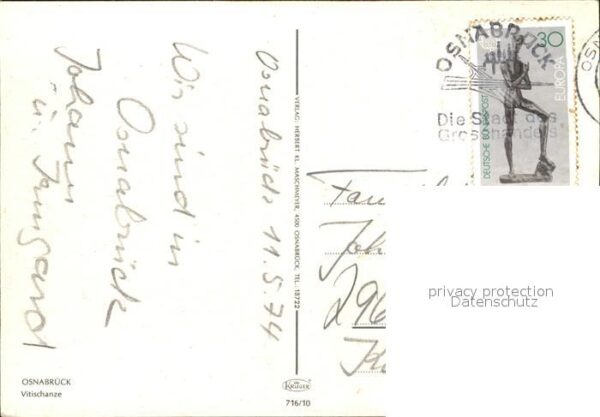 Osnabrück 11.5.74
Wir sind in
Osnabrück
Johannes
u. Irmgard
OSNABRÜCK
Vitischanze
VERLAG: HERBERT KL. MASCHMEYER, 4500 OSNABRÜCK, TEL. 18722
KRÜGER
716/10
OSNABRÜCK
Die Stadt des
Großhandels
30
EUROPA
DEUTSCHE BUNDESPOST
OSN
Fam
Joh
296
K
privacy protection
Datenschutz